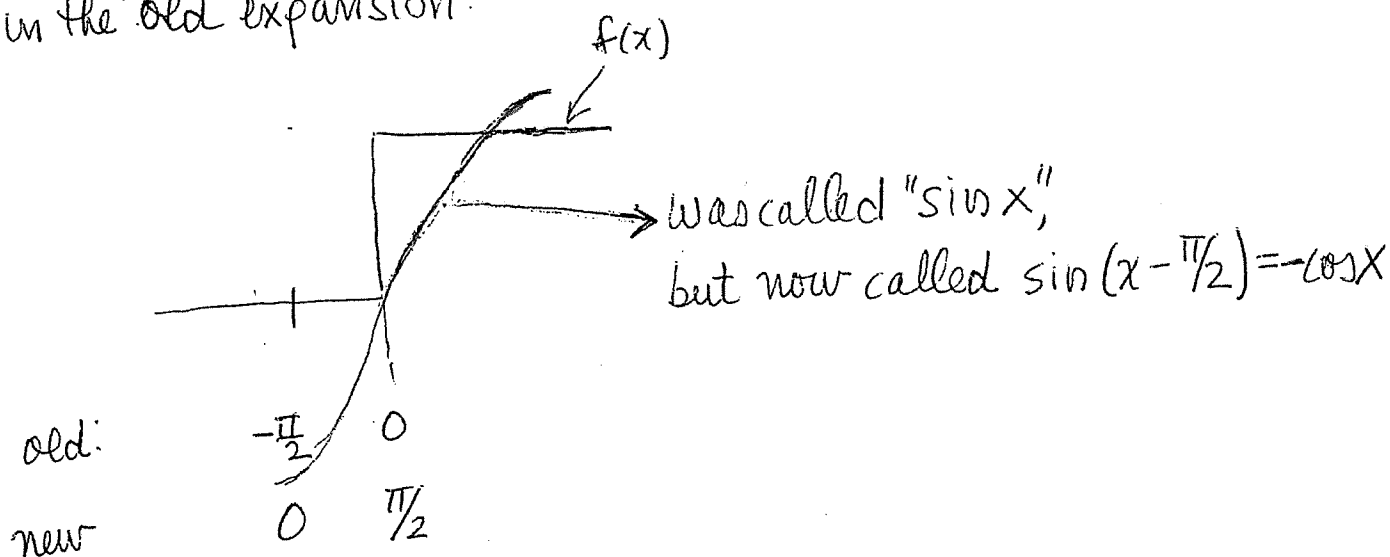 in the old expansion.
f(x)
was called "sin x",
but now called sin (x - π/2) = -cos x
old: -π/2 0
new 0 π/2